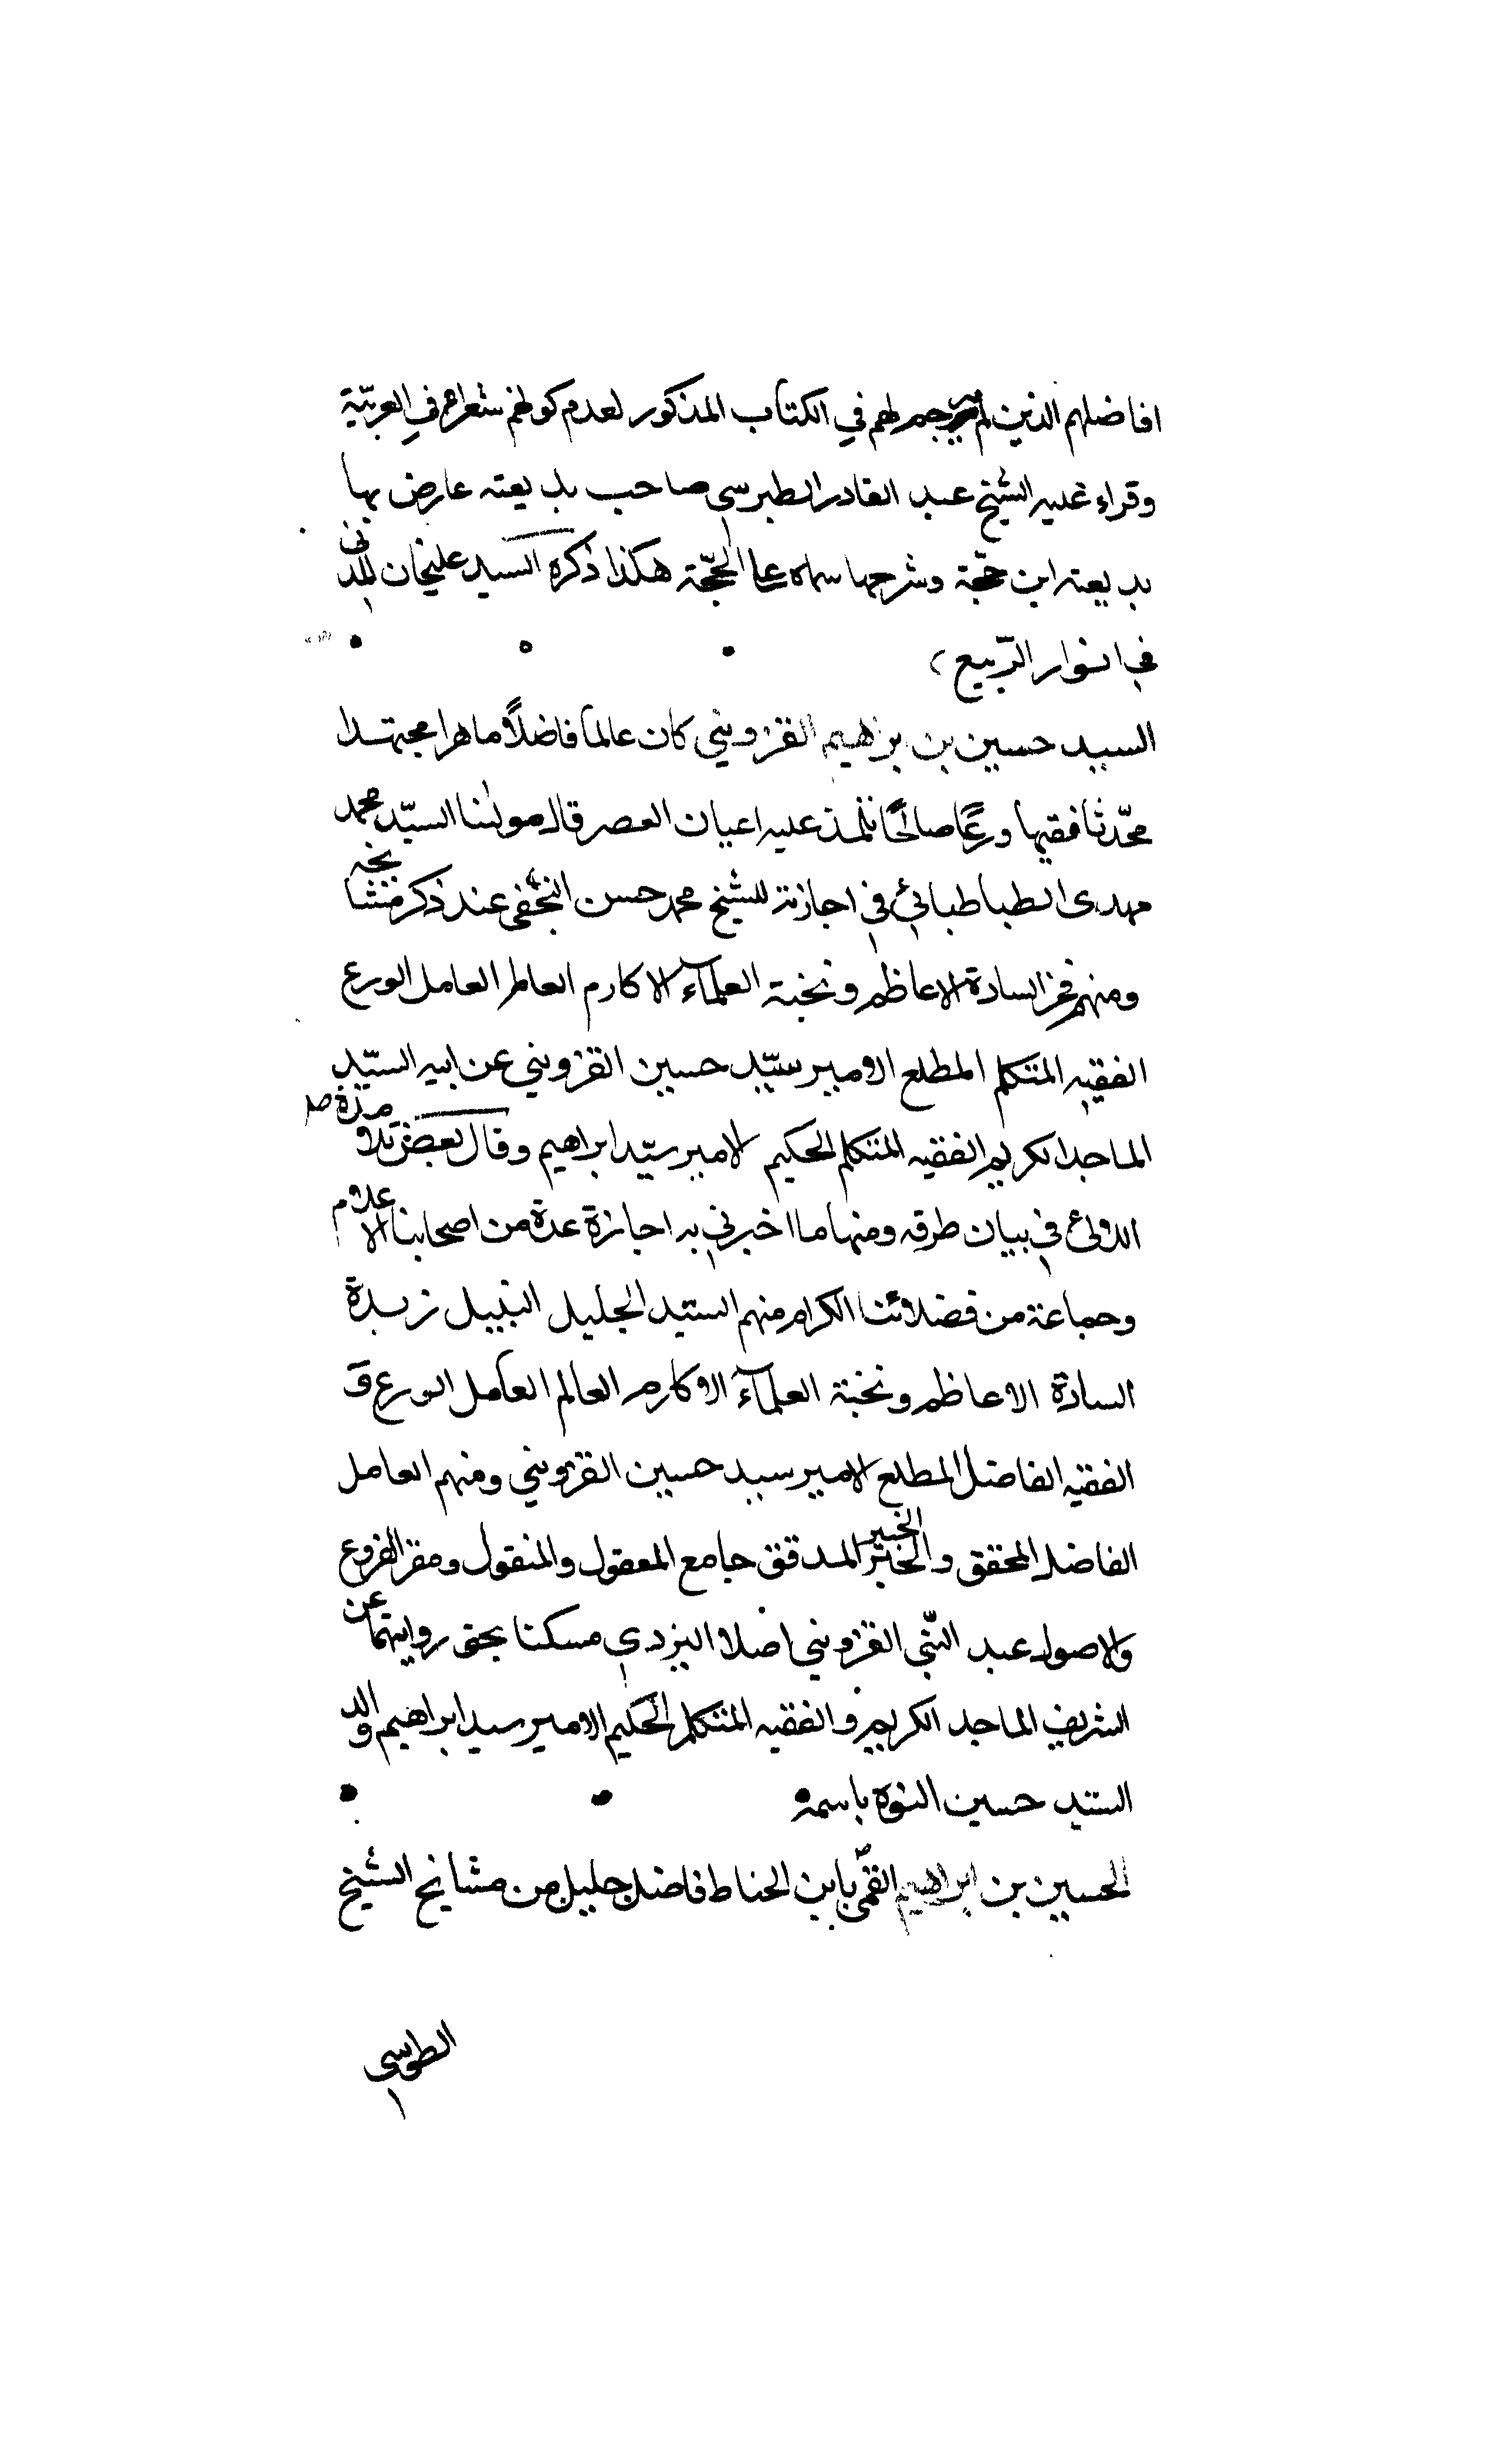 افاضلهم الذين لم يترجم لهم في الكتاب المذكور لعدم كونهم شعراء في العربيّة
وقراء عليه الشيخ عبد القادر الطبرسي صاحب بديعته عارض بها
بديعته ابن حجّة وشرحها سماه على الحجّة هكذا ذكره السيد عليخان المدنى
في انوار الربيع
السيد حسين بن ابراهيم القزويني كان عالما فاضلاً ماهرا مجتهدا
محّدثا فقيها ورعًا صالحًا تلمذ عليه اعيان العصر قال مولنا السيّد محمد
مهدى الطباطبائي في اجازته للشيخ محمد حسن النجفى عند ذكر مشايخه
ومنهم فخر السادة الاعاظم ونخبة العلمآء الاكارم العالم العامل الورع
الفقيه المتكلم المطلع الامير سيّد حسين القزويني عن ابيه السيّد
الماجد الكريم الفقيه المتكلم الحكيم الامير سيّد ابراهيم وقال بعض تلامذة صد
في بيان طرقه ومنها ما اخبرني به اجازة عدة من اصحابنا الاعلام
وجماعة من فضلائنا الكرام منهم السيد الجليل النبيل زبدة
السادة الاعاظم ونخبة العلمآء الاكارم العالم العامل الورع و
الفقيه الفاضل المطلع الامير سيد حسين القزويني ومنهم العامل
الفاضل المحقق والخبير المدقق جامع المعقول والمنقول ومقرر الفروع
والاصول عبد النّبي القزويني اصلا اليزدي مسكنا بحق روايتهما عن
الشريف الماجد الكريم والفقيه المتكلم الحكيم الامير سيد ابراهيم والد
السيد حسين المنوه باسمه
الحسين بن ابراهيم القمّى بابن الحناط فاضل جليل من مشايخ الشيخ
الطوسي